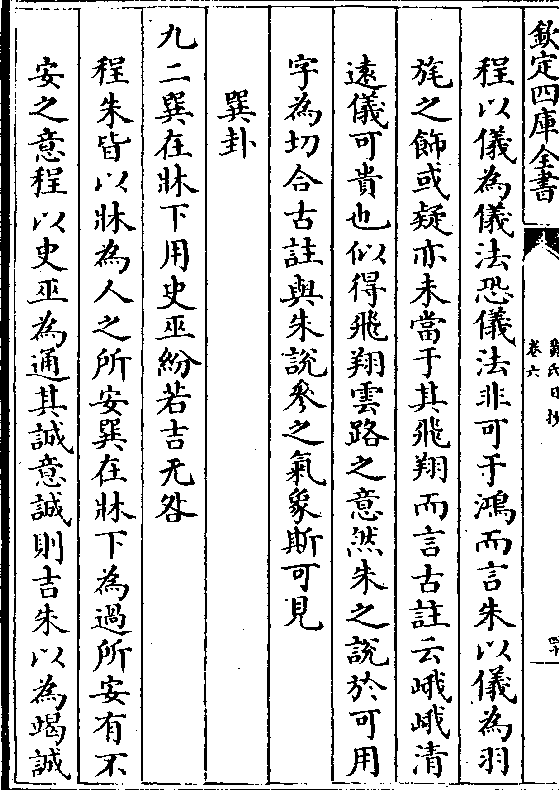 欽定四庫全書
黄氏日抄
卷六
程以儀為儀法恐儀法非可于鴻而言朱以儀為羽
旄之飾或疑亦未當于其飛翔而言古註云峨峨清
遠儀可貴也似得飛翔雲路之意然朱之說於可用
字為切合古註與朱說參之氣象斯可見
巽卦
九二巽在牀下用史巫紛若吉无咎
程朱皆以牀為人之所安巽在牀下為過所安有不
安之意程以史巫為通其誠意誠則吉朱以為竭誠